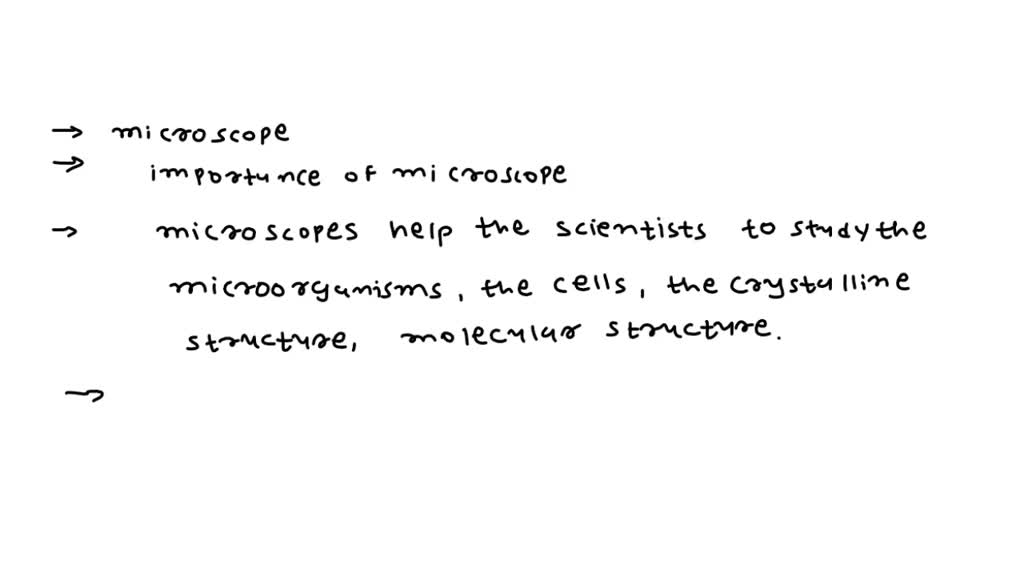 → microscope
→ importance of microscope
→ microscopes help the scientists to study the
microorganisms, the cells, the crystalline
structure, molecular structure.
→